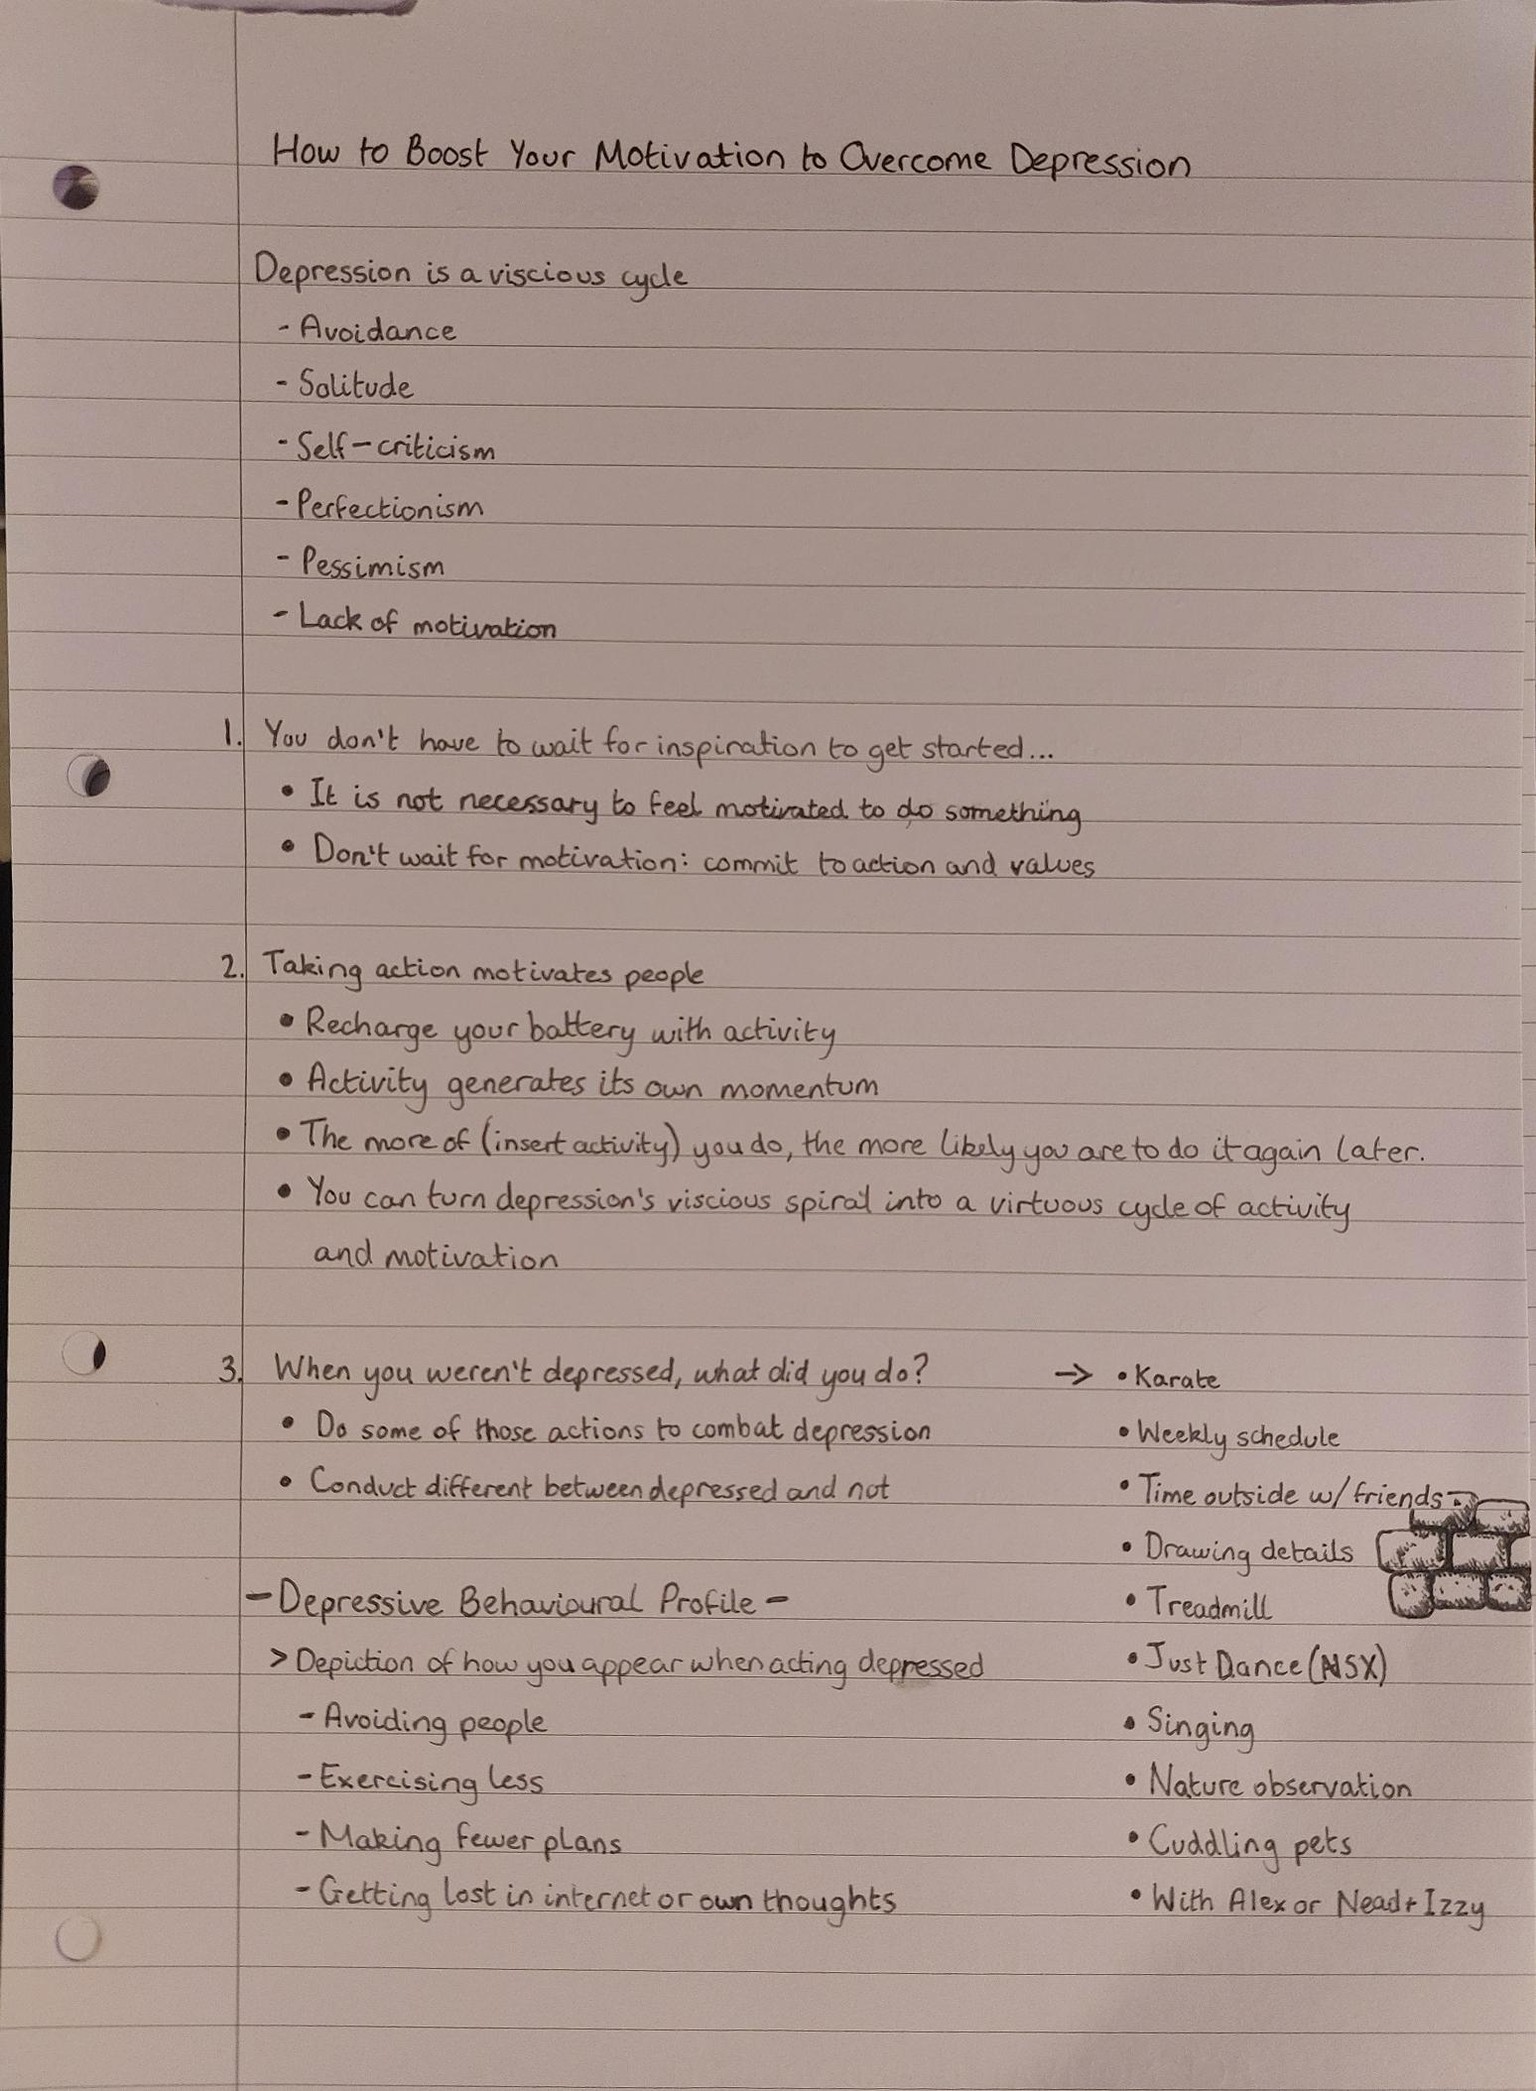 How to Boost Your Motivation to Overcome Depression
Depression is a viscious cycle
- Avoidance
- Solitude
- Self-criticism
- Perfectionism
- Pessimism
- Lack of motivation
1. You don't have to wait for inspiration to get started...
• It is not necessary to feel motivated to do something
• Don't wait for motivation: commit to action and values
2. Taking action motivates people
• Recharge your battery with activity
• Activity generates its own momentum
• The more of (insert activity) you do, the more likely you are to do it again later.
• You can turn depression's viscious spiral into a virtuous cycle of activity
and motivation
3. When you weren't depressed, what did you do?
• Do some of those actions to combat depression
• Conduct different between depressed and not
- Depressive Behavioural Profile -
> Depiction of how you appear when acting depressed
- Avoiding people
- Exercising less
- Making fewer plans
- Getting lost in internet or own thoughts
→ • Karate
• Weekly schedule
• Time outside w/ friends
• Drawing details
• Treadmill
• Just Dance (NSX)
• Singing
• Nature observation
• Cuddling pets
• With Alex or Nead + Izzy